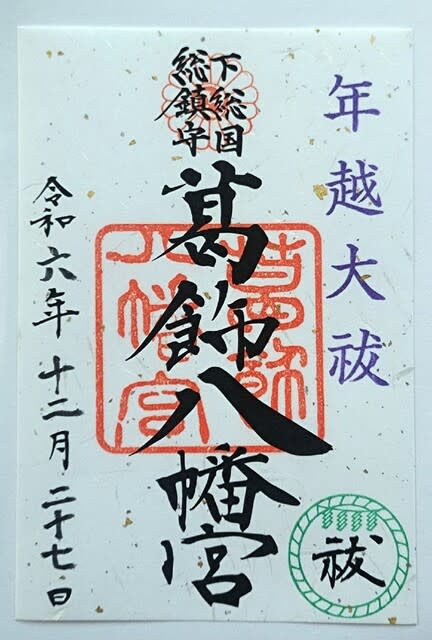 年越大祓
下総国
総鎮守
葛飾八幡宮
葛飾
八幡宮
令和六年十二月二十七日
祓